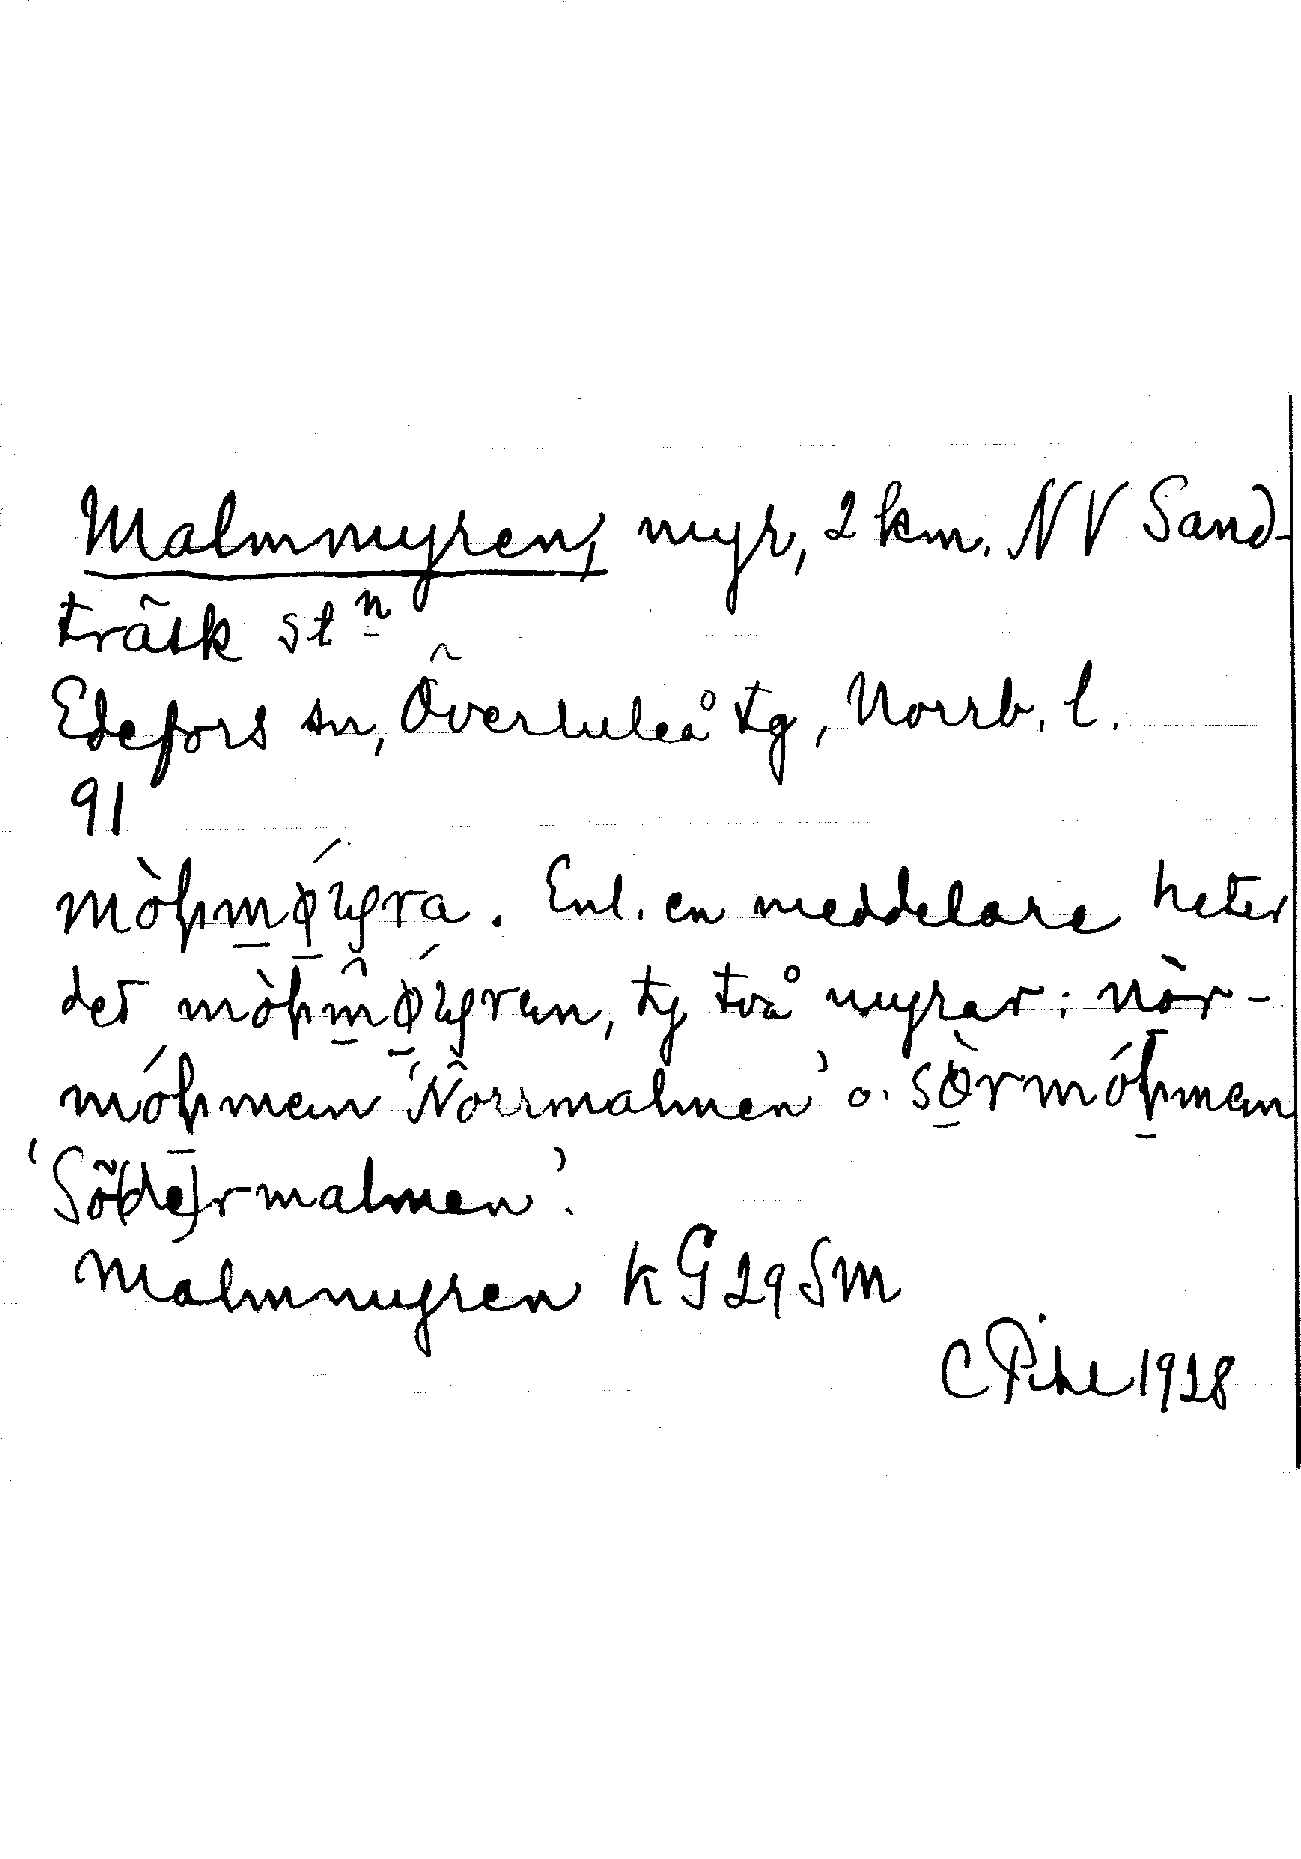 Malmmyren, myr, 2 km. NV Sand-
träsk stn
Edefors sn, Överluleå tg, Norrb. l.
91
Enl. en meddelare heter
det ty två myrar: nòr-
'Norrmalmen' o.
'Sö(de)rmalmen'.
Malmmyren k G 29 SM
C Pihl 1928